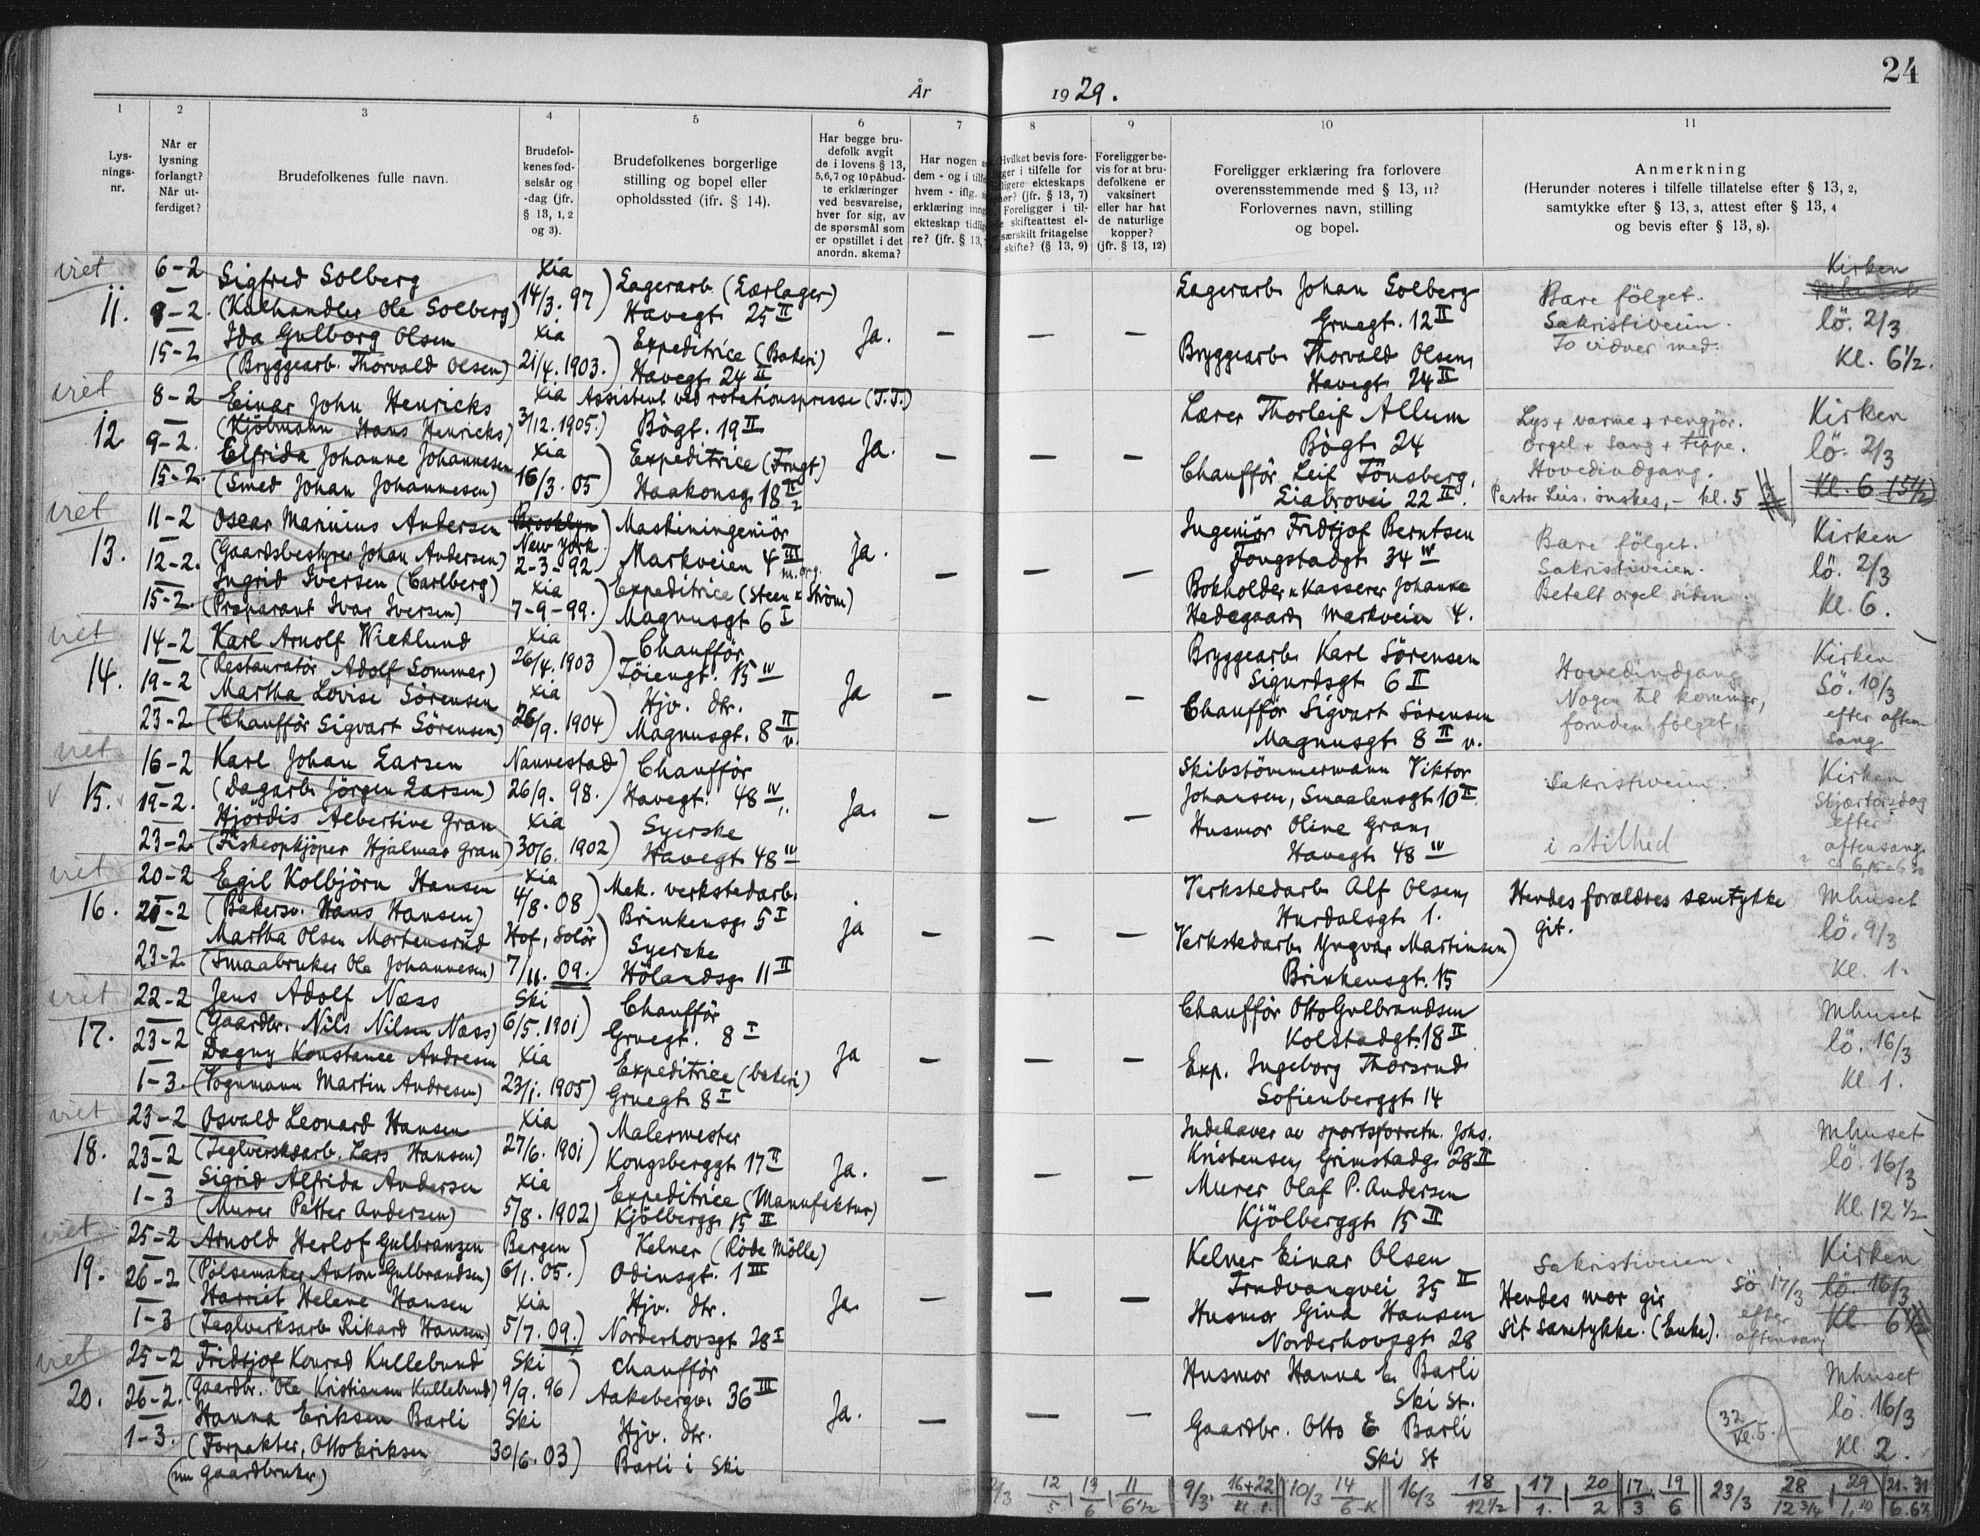 24
År 1929.
1 2 3 4 5 6 7 8 9 10 11
Lysningsnr.
Når er lysning forlangt? Når utferdiget?
Brudefolkenes fulle navn.
Brudefolkenes fødselsår og -dag (jfr. § 13, 1, 2 og 3).
Brudefolkenes borgerlige stilling og bopel eller opholdssted (ifr. § 14).
Har begge brudefolk avgit de i lovens § 13, 5,6,7 og 10 påbudte erklæringer ved besvarelse, hver for sig, av de spørsmål som er opstillet i det anordn. skema?
Har nogen a
dem - og i tilfe
hvem - iflg.
erklæring inng
ekteskap tidlig
re? (jfr. § 13,
Hvilket bevis fore-
ger i tilfelle for
ligere ekteskaps
hør? (jfr. § 13, 7)
Foreligger i til-
skifteattest el-
særskilt fritagelse
skifte? (§ 13, 9)
Foreligger bevis for at brudefolkene er vaksinert eller har hat de naturlige kopper? (jfr. § 13, 12)
Foreligger erklæring fra forlovere overensstemmende med § 13, 11? Forlovernes navn, stilling og bopel.
Anmerkning
(Herunder noteres i tilfelle tillatelse efter § 13, 2, samtykke efter § 13, 3, attest efter § 13, 4 og bevis efter § 13, 8).
viet
11.
6-2
8-2.
15-2
Sigfred Solberg
(Kulhandler Ole Solberg)
Ida Gulborg Olsen
(Bryggearb. Thorvald Olsen)
Xia
14/3. 97)
Xia
21/4. 1903.)
Lagerarb. (Lærlager)
Havegt. 25 II
Expeditrice (Bakeri)
Havegt. 24 II
Ja. – – –
Lagerarb. Johan Solberg
Gruegt. 12 II
Bryggearb. Thorvald Olsen,
Havegt. 24 II
Bare fölget.
Sakristiveien.
To vidner med.
Kirken
Mhuset
lö. 2/3
Kl. 6 1/2.
viet
12
8-2
9-2.
15-2.
Einar John Henricks
(Kjölmann Hans Henricks)
Elfrida Johanne Johannesen
(Smed Johan Johannesen)
Xia
3/12. 1905.)
Xia
16/3. 05)
Assistent ved rotationspresse (T.T.)
Bögt. 19 II
Expeditrice (Frugt)
Haakonsg. 18 II
Ja. – – –
Lærer Thorleif Allum
Bögt. 24
Chaufför Leif Tönsberg,
Liabrovei 22 II.
Lys + varme + rengjör.
Orgel + sang + teppe.
Hovedindgang.
Pastor Leis. önskes, – kl. 5
Kirken
lö. 2/3
Kl. 6 (5 1/2)
viet
13.
11-2
12-2.
15-2.
Oscar Marinius Andersen
(Gaardsbestyrer Johan Andersen)
Ingrid Iversen (Carlberg)
(Præparant Ivar Iversen)
Brooklyn
New York.
2-3-92)
Xia
7-9-99.)
Maskiningeniör
Markveien 4 III
m. org.
Expeditrice (Steen & Ström)
Magnusgt. 6 I
Ja. – – –
Ingeniör Fridtjof Berntsen
Tongstadgt. 34 IV
Bokholder & Kasserer Johanne
Hedegaard, Markveien 4.
Bare fölget.
Sakristiveien.
Betalt orgel siden
Kirken
lö. 2/3
Kl. 6.
viet
14.
14-2
19-2
23-2.
Karl Arnolf Wicklund
(Restauratör Adolf Sommer)
Martha Lovise Sörensen
(Chaufför Sigvart Sörensen)
Xia
26/4. 1903)
Xia
26/9. 1904)
Chaufför
Töiengt. 15 IV
Hjv. dtr.
Magnusgt. 8 II v.
Ja – – –
Bryggearb. Karl Sörensen
Sigurdsgt. 6 II
Chaufför Sigvart Sörensen
Magnusgt. 8 II v.
Hovedindgang.
Nogen til kommer,
foruden fölget.
Kirken
Sö. 10/3
efter aften
sang
viet
15.
16-2
19-2.
23-2.
Karl Johan Larsen
(Dagarb. Jörgen Larsen)
Hjördis Albertine Gran
(Fiskeopkjöper Hjalmar Gran)
Nannestad
26/9. 98.)
Xia
30/6. 1902)
Chaufför
Havegt. 48 IV
Syerske
Havegt. 48 IV
Ja. – – –
Skibstömmermann Viktor
Johansen, Smaalensgt. 10 II
Husmor Oline Gran,
Havegt. 48 IV
Sakristiveien.
i stilhed
Kirken
Skjærtorsdag
efter
aftensang.
viet
16.
20-2
21-2
23-2
Egil Kolbjörn Hansen
(Bakersv. Hans Hansen)
Martha Olsen Mortensrud
(Smaabruker Ole Johannesen)
Xia
4/8. 08)
Hof, Solör
7/11. 09.)
Mek. verkstedarb.
Brinkensg. 5 I
Syerske
Hölandsg. 11 II
Ja – – –
Verkstedarb. Alf Olsen,
Hurdalsgt. 1.
Verkstedarb. Yngvar Martinsen)
Brinkensgt. 15
Hendes forældres samtykke
git.
Mhuset
lö. 9/3
Kl. 1.
viet
17.
22-2
23-2
1-3.
Jens Adolf Næss
(Gaardbr. Nils Nilsen Næss)
Dagny Konstance Andresen
(Vognmann Martin Andresen)
Ski
6/5. 1901)
Xia
23/1. 1905)
Chaufför
Gruegt. 8 I
Expeditrice (bakeri)
Gruegt. 8 I
Ja – – –
Chaufför Otto Gulbrandsen
Kolstadgt. 18 II
Exp. Ingeborg Thorsrud
Sofienberggt. 14
Mhuset
lö. 16/3
Kl. 1.
viet
18.
23-2
23-2
1-3
Osvald Leonard Hansen
(Teglverksarb. Lars Hansen)
Sigrid Alfrida Andersen
(Murer Petter Andersen)
Xia
27/6. 1901)
Xia
5/8. 1902)
Malermester
Kongsberggt. 17 II
Expeditrice (Manufaktur)
Kjölbergg. 15 II
Ja. – – –
Indehaver av sportsforretn. Johs.
Kristensen, Grimstadg. 28 II
Murer Olaf P. Andersen
Kjölberggt. 15 II
Mhuset
lö. 16/3
Kl. 12 1/2
viet
19.
25-2
26-2
1-3
Arnold Herlof Gulbranzen
(Pölsemaker Anton Gulbrandsen)
Harriet Helene Hansen
(Teglverksarb. Rikard Hansen)
Bergen
6/1. 05.)
Xia
5/7. 09.)
Kelner (Röde Mölle)
Odinsgt. 1 III
Hjv. dtr.
Norderhovsgt. 28 I
Ja. – – –
Kelner Einar Olsen
Trudvangvei 35 II
Husmor Gina Hansen
Norderhovsgt. 28
Sakristiveien.
Hendes mor gir
sit samtykke. (Enke).
Sö 17/3
efter
aftensang
Kirken
lö. 16/3
Kl. 6 1/2
viet
20.
25-2
26-2.
1-3.
Fridtjof Konrad Kullebund
(Gaardbr. Ole Kristiansen Kullebund)
Hanna Eriksen Barli
(Forpakter, Otto Eriksen
(nu gaardbruker)
Ski
9/9. 96)
Ski
30/6. 03)
Chaufför
Aakebergv. 36 III
Hjv. dtr.
Barli i Ski
Ja. – – –
Husmor Hanna E. Barli
Ski St.
Gaardbr. Otto E. Barli
Ski St
32
Kl. 5.
Mhuset
lö. 16/3
Kl. 2.
2/3 12/5 13/6 11/6 1/2 9/3. 16+22/Kl. 1. 10/3 14/6-K 16/3 18/12 1/2 17/1. 20/2 17/3 19/6 23/3 28/12 3/4